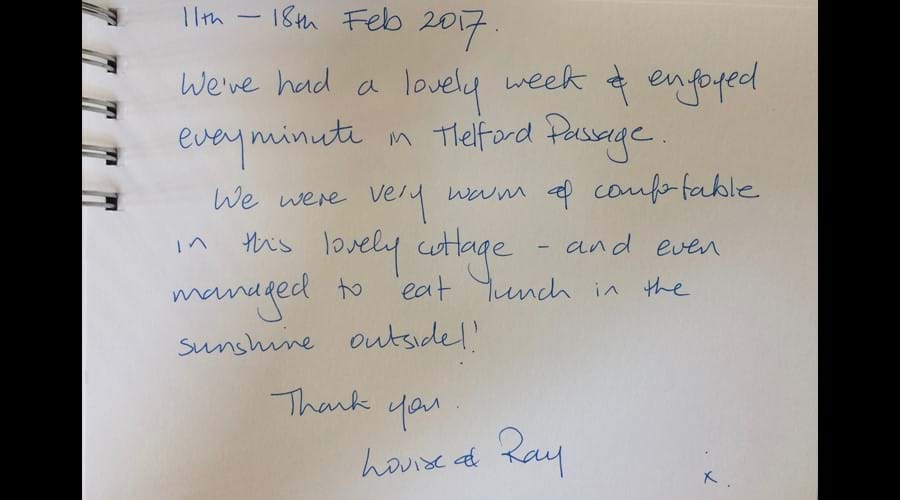 11th - 18th Feb 2017.
We've had a lovely week & enjoyed
every minute in Helford Passage.
We were very warm & comfortable
in this lovely cottage - and even
managed to eat lunch in the
sunshine outside!!
Thank you.
Louise & Ray
x.